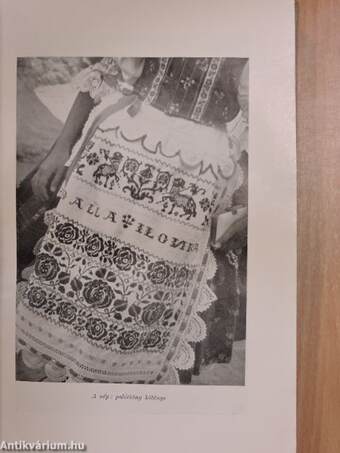 ALLA ILONA
A nép: palóclány köténye
Antikvárium.hu